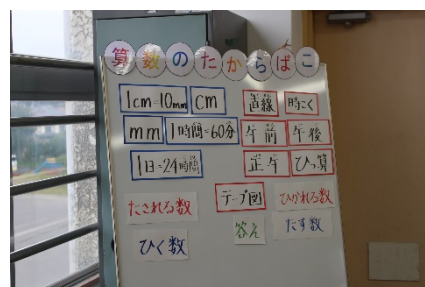 算数のたからばこ
1cm=10mm cm 直線 時こく
mm 1時間=60分 午前 午後
1日=24時間 正午 ひっ算
たされる数 テープ図 ひかれる数
ひく数 答え たす数